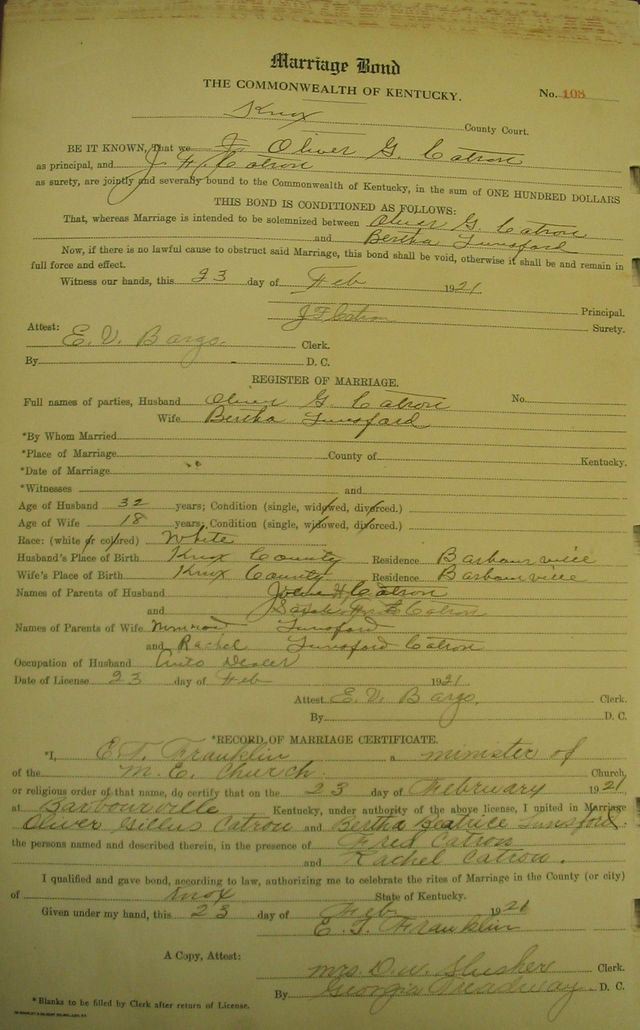 Marriage Bond
THE COMMONWEALTH OF KENTUCKY.
No. 108
Knox County Court.
BE IT KNOWN, That we Oliver G. Catron
as principal, and J H Catron
as surety, are jointly and severally bound to the Commonwealth of Kentucky, in the sum of ONE HUNDRED DOLLARS
THIS BOND IS CONDITIONED AS FOLLOWS:
That, whereas Marriage is intended to be solemnized between Oliver G. Catron
and Bertha Lunsford
Now, if there is no lawful cause to obstruct said Marriage, this bond shall be void, otherwise it shall be and remain in
full force and effect.
Witness our hands, this 23 day of Feb 1921
Principal.
Catron Surety.
Attest:
E. V. Bargo Clerk.
By D. C.
REGISTER OF MARRIAGE.
Full names of parties, Husband Oliver G Catron No.
Wife Bertha Lunsford
*By Whom Married
*Place of Marriage County of Kentucky.
*Date of Marriage
*Witnesses and
Age of Husband 32 years; Condition (single, widowed, divorced.)
Age of Wife 18 years; Condition (single, widowed, divorced.)
Race: (white or colored) White
Husband's Place of Birth Knox County Residence Barbourville
Wife's Place of Birth Knox County Residence Barbourville
Names of Parents of Husband H Catron
and Catron
Names of Parents of Wife Lunsford
and Rachel Lunsford Catron
Occupation of Husband Auto Dealer
Date of License 23 day of Feb 1921
Attest E. V. Bargo. Clerk.
By D. C.
*RECORD OF MARRIAGE CERTIFICATE.
*I, E. T. Franklin a minister of
of the M. E. Church Church,
or religious order of that name, do certify that on the 23 day of February 1921
at Barbourville Kentucky, under authority of the above license, I united in Marriage
Oliver Gillus Catron and Bertha Beatrice Lunsford
the persons named and described therein, in the presence of Fred Catron
and Rachel Catron.
I qualified and gave bond, according to law, authorizing me to celebrate the rites of Marriage in the County (or city)
of Knox State of Kentucky.
Given under my hand, this 23 day of Feb 1921
E. T. Franklin
A Copy, Attest:
Mrs. D. W. Slusher Clerk.
By Georgia Treadway D. C.
*Blanks to be filled by Clerk after return of License.